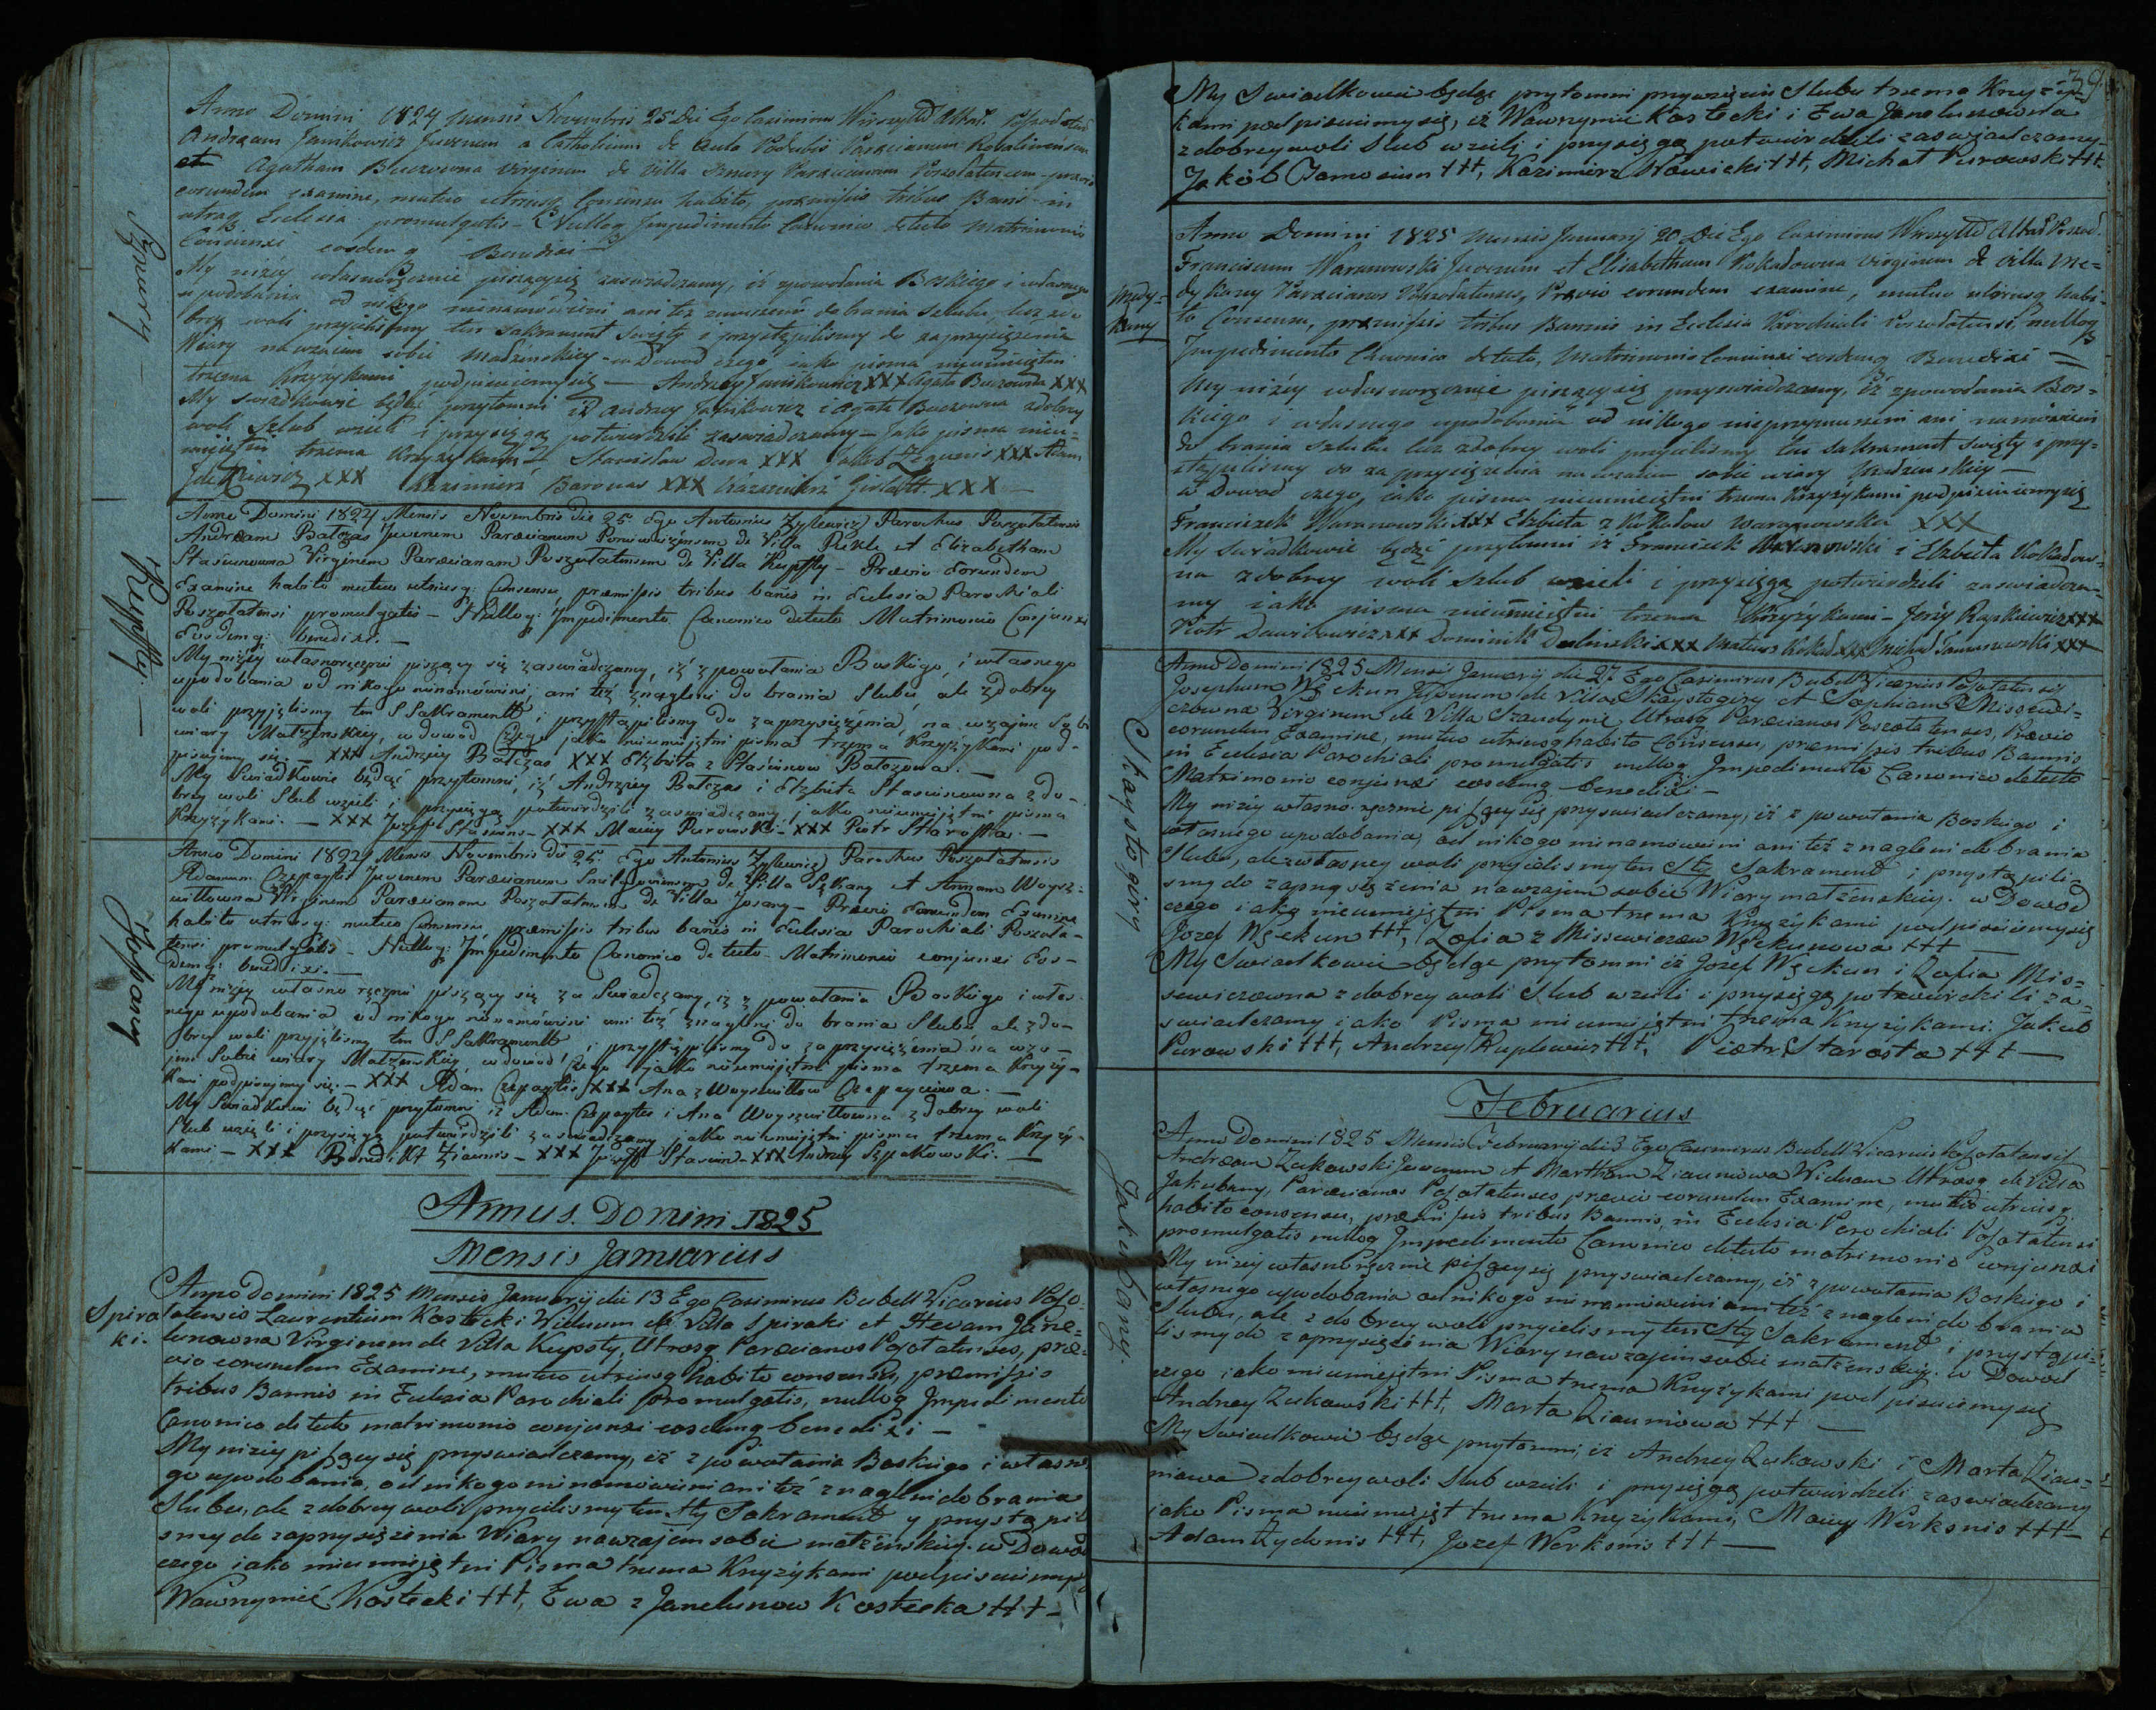 Sznury
Anno Domini 1824 mensis Novembris 25 Die Ego Casimirus Wirszyłł Altar. Poszołat
Andream Jankowicz Juvenem a Catholicum de aula Podubis Paraecianum
et Agatham Buczowna virginem de villa Sznury Paraecianam Poszolatensem praevio
eorundem examine, mutuo utriusq Consensu habito, praemissis tribus Bannis in
utraq Ecclesia promulgatis - Nulloq Impedimento Canonico detecto Matrimonio
Coniunxi eosdem q Benedixi
My niżey własnoręcznie piszącysię zaswiadczamy, iż zpowołania Boskiego i własnego
upodobania od nikogo nienamówieni ani też zmuszeni do brania szlubu, lecz zdo
brey woli przyieliśmy ten Sakrament Swięty i przystąpilismy do zaprzysiężenia
Wiary nawzaiem sobie Małżenskiey - w Dowod czego iako pisma nieumieiętni
trzema Krzyżykami podpisuiemysię - Andrzey Jankowicz XXX Agata Buczowna XXX
My swiadkowie będąc przytomni iż Andrzey Jankowicz i Agata Buczowna zdobrey
woli Szlub wzieli i przysięgą potwierdzili zaswiadczamy - Jako pisma nieu=
mieiętni trzema Krzyżykami - Stanisław Dura XXX Jakub XXX Adam
XXX Kazimierz Baronas XXX Kazimierz XXX
Kupsty.
Anno Domini 1824 Mensis Novembris die 25. Ego Antonius Zylewicz Parochus Poszołatensis
Andream Bałczas Juvenem Paraecianum de Villa Pikle et Elizabetham
Staśiunowna Virginem Paraecianam Poszołatensem de Villa Kupsty - Praevio Eorundem
Examine habito mutuo utriusq: Consensu, praemissis tribus banis in Eclesia Parochiali
Poszołatensi promulgatis - Nulloq: Impedimento Canonico detecto Matrimonio Conjunxi
Eosdemq: benedixi. -
My niżey własnoręcznie piszący się zaswiadczamy, iż zpowołania Boskiego, i własnego
upodobania od nikogo nienamówieni, ani też znagleni do brania Slubu, ale zdobrey
woli przyjęlismy ten S Sakrament i przystąpilismy do zaprzysiężenia, na wzajem Sobie
wiary Małżenskiey, w dowod Czego jako nieumiejętni pisma trzema Krzyżykami pod-
pisujemy się. - XXX Andrzey Bałczas XXX Elżbieta z Staśiunow Bałczowa. -
My Swiadkowie będąc przytomni, iż Andrzey Bałczas i Elżbieta Stasiunowna zdo-
brey woli Slub wzieli i przysięgą potwierdzili zaswiadczamy, jako nieumiejętni pisma
Krzyżykami. - XXX Jozef Stasiuns - XXX Maciey Purowski - XXX Piotr Starosta. -
Josany
Anno Domini 1824 Mensis Novembris die 25. Ego Antonius Zylewicz Parochus Poszołatensis
Adamum Czepaytis Juvenem Paraecianum de Villa et Annam Woysz-
wiłłowna Virginem Paraecianam Poszołatensem de Villa Josany - Praevio Eorundem Examine
habito utriusq: mutuo Consensu praemissis tribus banis in Eclesia Parochiali Poszoła-
tensi promulgatis - Nulloq: Impedimento Canonico detecto Matrimonio conjunxi Eos-
demq: benedixi. -
My niżey własno ręcznie piszący się za Swiadczamy, iż z powołania Boskiego i włas-
nego upodobania od nikogo nienamówieni ani też znagleni do brania Slubu ale zdo-
brey woli przyjęlismy ten S Sakrament i przystąpilismy do zaprzysiężenia na wza-
jem Sobie wiary Małżenskiey, w dowod Czego jako nieumiejętni pisma trzema Krzyży-
kami podpisujemy się. - XXX Adam Czepaytis XXX Ana z Woyszwiłłow Czepayciowa. -
My Swiadkowie będąc przytomni iż Adam Czepaytis i Ana Woyszwiłłowna zdobrey woli
Slub wzieli i przysięgą potwierdzili zaswiadczamy jako nieumiejętni pisma trzema Krzyży-
kami - XXX Benedikt Ziaunis - XXX Jozeff Stasiuns - XXX Andrzey Szpakowski. -
Annus Domini 1825
Mensis Januarius
Spira
ki.
Anno Domini 1825 Mensis Januarij die 13 Ego Casimirus Bubell Vicarius Poszo=
latensis Laurentium Kostecki Viduum de Villa Spiraki et Hevam Jane=
lunowna Virginem de Villa Kupsty, Utrosq Paraecianos Poszołatenses, prae=
vio eorundem Examine, mutuo utriusq habito consensu, praemissis
tribus Bannis in Ecclesia Parochiali promulgatis, nulloq Impedimento
Canonico detecto matrimonio conjunxi eosdemq benedixi -
My niżey piszący się przyswiadczamy, iż z powołania Boskiego i własne
go upodobania, od nikogo nienamówieni ani też znagleni do brania
Slubu, ale zdobrey woli przyielismy ten Sty Sakrament y przystąpili
smy do zaprzysiężenia Wiary nawzajem sobie małżenskiey. w Dowod
czego iako nieumiejętni Pisma trzema Krzyżykami podpisuiemy
Wawrzyniec Kostecki +++, Ewa z Janelunow Kostecka +++ -
39.
My Swiadkowie będąc przytomni przy wzięciu Slubu trzema Krzyży=
kami podpisuiemy się, iż Wawrzyniec Kostecki i Ewa Janelunowna
z dobrey woli Slub wzieli i przysięgą potwierdzili zaswiadczamy.
Jakób +++, Kazimierz Nowicki +++, Michał Purowski +++.
Medy=
kany
Anno Domini 1825 mensis Januarij 20 Die Ego Casimirus Wirszyłł Altar Poszoł.
Franciscum Waranowski Juvenem et Elisabetham Kokadowna virginem de villa Me=
dykany Paraecianos Poszołatenses, Praevio eorundem examine, mutuo utriusq habi=
to Consensu, praemissis tribus Bannis in Ecclesia Parochiali Poszołatensi nulloq
Impedimento Canonico detecto, Matrimonio Coniunxi eosdemq Benedixi =
My niżey własnoręcznie piszącysię przyswiadczamy, iż zpowołania Bos=
kiego i własnego upodobania od nikogo nieprzymuszeni ani namówieni
do brania szlubu lecz zdobrey woli przyielismy ten Sakrament swięty i przy=
stąpilismy do zaprzysiężenia nawzaiem sobie wiary Małżenskiey -
w Dowod czego, iako pisma nieumieiętni trzema Krzyżykami podpisuiemysię
Franciszek Waranowski XXX Elżbieta z Kokadow Waranowska XXX
My Swiadkowie będąc przytomni iż Franciszek Waranowski i Elżbieta Kokadow=
na zdobrey woli szlub wzieli i przysięgą potwierdzili zaswiadcza=
my iako pisma nieumieiętni trzema Krzyżykami - Jerzy Rapkiewicz XXX
Piotr Dawidowicz XXX Dominik XXX Mateusz Kokad XXX Michał Tomaszewski XXX
Skaystogiry
Anno Domini 1825 Mensis Januarij die 27 Ego Casimirus Bubell Vicarius Poszołatensis
Josephum Węckun Juvenem de Villa Skaystogiry et Sophiam Missewi=
czowna Virginem de Villa Szaudynie Utrosq Paraecianos Poszołatenses, Praevio
eorundem Examine, mutuo utriusq habito Consensu, praemissis tribus Bannis
in Ecclesia Parochiali promulgatis nulloq Impedimento Canonico detecto
Matrimonio conjunxi eosdemq benedixi -
My niżey własno ręcznie piszący się przyswiadczamy, iż z powołania Boskiego i
własnego upodobania, od nikogo nienamowieni ani też znagleni do brania
Slubu, ale z własney woli przyielismy ten Sty Sakrament i przystąpili=
smy do zaprzysiężenia nawzajem sobie Wiary małżenskiey. w Dowod
czego iako nieumiejętni Pisma trzema Krzyżykami podpisuiemysię
Jozef Węckun +++, Zofia z Missewiczow Węckunowa +++
My Swiadkowie będąc przytomni iż Jozef Węckun i Zofia Mis=
sewiczowna z dobrey woli Slub wzieli i przysięgą potwierdzili za=
swiadczamy iako Pisma nieumiejętni trzema Krzyżykami. Jakub
Purowski +++, Andrzey Kuplewicz +++, Piotr Starosta +++ -
Februarius
Jakubany.
Anno Domini 1825 Mensis Februarij die 3 Ego Casimirus Bubell Vicarius Poszołatensis
Andream Zukowski Juvenem et Martham Ziauniowa Viduam Utrosq de Villa
Jakubany, Paraecianos Poszołatenses praevio eorundem Examine, mutuo utriusq
habito consensu, praemissis tribus Bannis, in Ecclesia Parochiali Poszołatensi
promulgatis nulloq Impedimento Canonico detecto matrimonio conjunxi
My niżey własnoręcznie piszący się przyswiadczamy, iż z powołania Boskiego i
własnego upodobania od nikogo nienamówieni ani też znagleni do brania
Slubu, ale z dobrey woli przyielismy ten Sty Sakrament i przystąpi=
lismy do zaprzysiężenia Wiary nawzajem sobie małżenskiey. w Dowod
czego iako nieumiejętni Pisma trzema Krzyżykami podpisuiemysię
Andrzey Zukowski +++, Marta Ziauniowa +++ -
My Swiadkowie będąc przytomni iż Andrzey Zukowski i Marta Ziau=
niowa z dobrey woli Slub wzieli i przysięgą potwierdzili zaswiadczamy
iako Pisma nieumiejęt trzema Krzyżykami, Maciey Werksnis +++
Adam Rydonis +++, Jozef Werksnis +++ -